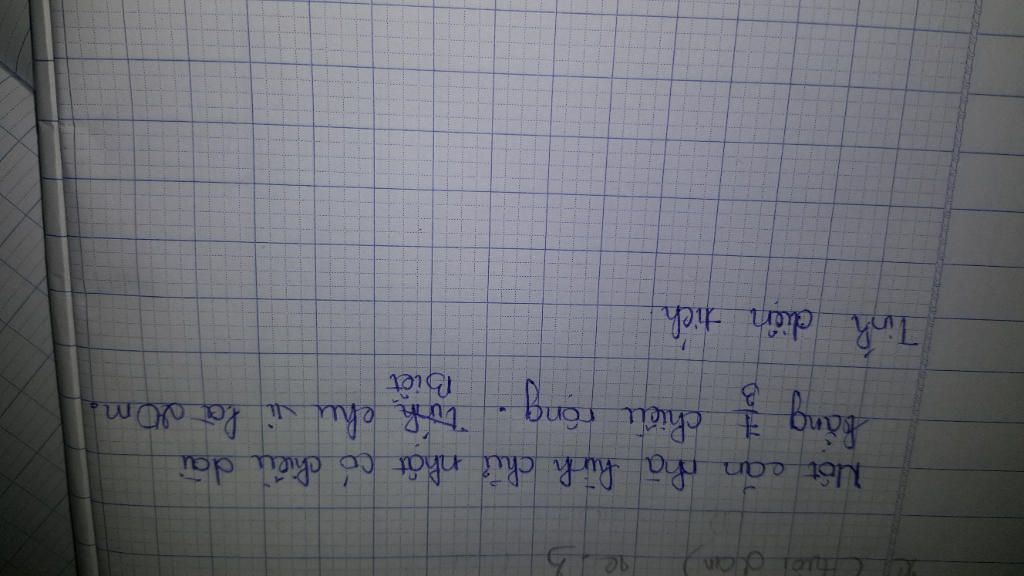 Một căn nhà hình chữ nhật có chiều dài
bằng 7/3 chiều rộng. Biết chu vi là 20m.
Tính diện tích